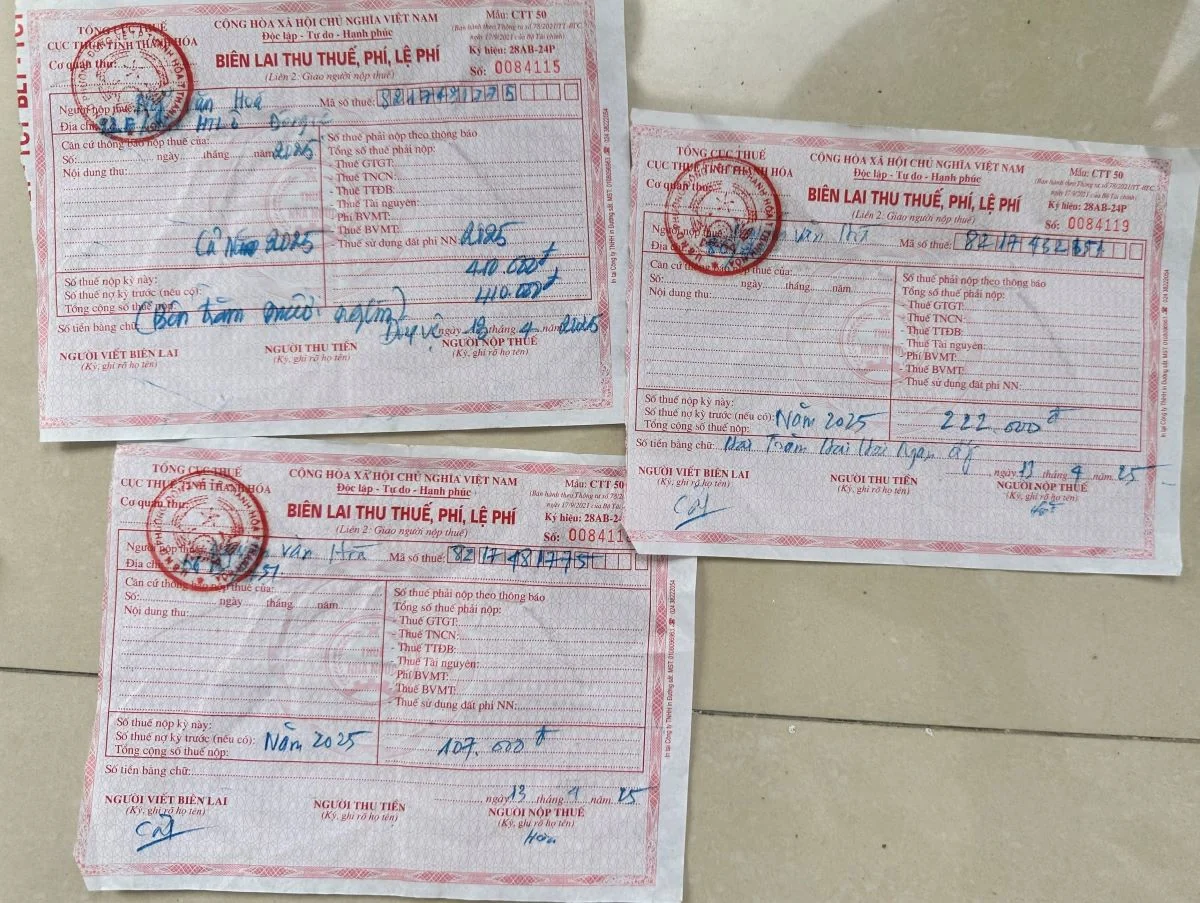 TỔNG CỤC THUẾ
CỤC THUẾ TỈNH THANH HÓA
Cơ quan thu:
CỘNG HÒA XÃ HỘI CHỦ NGHĨA VIỆT NAM
Độc lập - Tự do - Hạnh phúc
BIÊN LAI THU THUẾ, PHÍ, LỆ PHÍ
(Liên 2: Giao người nộp thuế)
Mẫu: CTT 50
(Ban hành theo Thông tư số 78/2021/TT-BTC
ngày 17/9/2021 của Bộ Tài chính)
Ký hiệu: 28AB-24P
Số: 0084115
Người nộp thuế: Văn Hoá Mã số thuế: 8217481775
Địa chỉ:
Căn cứ thông báo nộp thuế của:
Số: ngày tháng năm 2025
Nội dung thu:
Cả Năm 2025
Số thuế phải nộp theo thông báo
Tổng số thuế phải nộp:
- Thuế GTGT:
- Thuế TNCN:
- Thuế TTĐB:
- Thuế Tài nguyên:
- Phí BVMT:
- Thuế BVMT:
- Thuế sử dụng đất phi NN: 2025
Số thuế nộp kỳ này: 410.000đ
Số thuế nợ kỳ trước (nếu có):
Tổng cộng số thuế nộp: 410.000đ
Số tiền bằng chữ: (Bốn trăm mười nghìn)
ngày 13 tháng 4 năm 2025
NGƯỜI VIẾT BIÊN LAI
(Ký, ghi rõ họ tên)
NGƯỜI THU TIỀN
(Ký, ghi rõ họ tên)
NGƯỜI NỘP THUẾ
(Ký, ghi rõ họ tên)
TỔNG CỤC THUẾ
CỤC THUẾ TỈNH THANH HÓA
Cơ quan thu:
CỘNG HÒA XÃ HỘI CHỦ NGHĨA VIỆT NAM
Độc lập - Tự do - Hạnh phúc
BIÊN LAI THU THUẾ, PHÍ, LỆ PHÍ
(Liên 2: Giao người nộp thuế)
Mẫu: CTT 50
(Ban hành theo Thông tư số 78/2021/TT-BTC
ngày 17/9/2021 của Bộ Tài chính)
Ký hiệu: 28AB-24P
Số: 0084119
Người nộp thuế: văn Mã số thuế:
Địa chỉ:
Căn cứ thông báo nộp thuế của:
Số: ngày tháng năm
Nội dung thu:
Số thuế phải nộp theo thông báo
Tổng số thuế phải nộp:
- Thuế GTGT:
- Thuế TNCN:
- Thuế TTĐB:
- Thuế Tài nguyên:
- Phí BVMT:
- Thuế BVMT:
- Thuế sử dụng đất phi NN:
Số thuế nộp kỳ này:
Số thuế nợ kỳ trước (nếu có): Năm 2025 222.000đ
Tổng cộng số thuế nộp:
Số tiền bằng chữ: Hai Trăm Hai Hai Ngàn
ngày 13 tháng 4 năm 25
NGƯỜI VIẾT BIÊN LAI
(Ký, ghi rõ họ tên)
NGƯỜI THU TIỀN
(Ký, ghi rõ họ tên)
NGƯỜI NỘP THUẾ
(Ký, ghi rõ họ tên)
TỔNG CỤC THUẾ
CỤC THUẾ TỈNH THANH HÓA
Cơ quan thu:
CỘNG HÒA XÃ HỘI CHỦ NGHĨA VIỆT NAM
Độc lập - Tự do - Hạnh phúc
BIÊN LAI THU THUẾ, PHÍ, LỆ PHÍ
(Liên 2: Giao người nộp thuế)
Mẫu: CTT 50
(Ban hành theo Thông tư số 78/2021
ngày 17/9/2021 của Bộ Tài
Ký hiệu: 28AB-24
Số: 008411
Người nộp thuế: văn Hoà Mã số thuế: 8217481775
Địa chỉ:
Căn cứ thông báo nộp thuế của:
Số: ngày tháng năm
Nội dung thu:
Số thuế phải nộp theo thông báo
Tổng số thuế phải nộp:
- Thuế GTGT:
- Thuế TNCN:
- Thuế TTĐB:
- Thuế Tài nguyên:
- Phí BVMT:
- Thuế BVMT:
- Thuế sử dụng đất phi NN:
Số thuế nộp kỳ này:
Số thuế nợ kỳ trước (nếu có): Năm 2025 107.000đ
Tổng cộng số thuế nộp:
Số tiền bằng chữ:
ngày 13 tháng 4 năm 25
NGƯỜI VIẾT BIÊN LAI
(Ký, ghi rõ họ tên)
NGƯỜI THU TIỀN
NGƯỜI NỘP THUẾ
(Ký, ghi rõ họ tên)